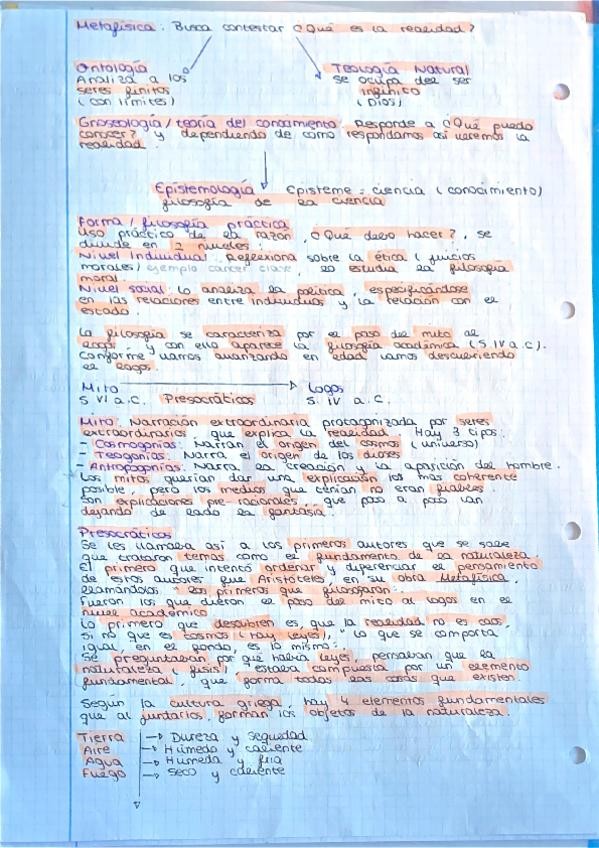 Metafísica: Busca contestar ¿Qué es la realidad?
Ontología
Analiza a los
seres finitos
(con límites)
Teología Natural
se ocupa del ser
infinito
(Dios)
Gnoseología / teoría del conocimiento. Responde a ¿Qué puedo
conocer? y dependiendo de cómo respondamos así veremos la
realidad.
Epistemología Episteme = ciencia (conocimiento)
filosofía de la ciencia
Forma / filosofía práctica
Uso práctico de la razón, ¿Qué debo hacer?, se
divide en 2 niveles:
Nivel Individual. Reflexiona sobre la ética (juicios
morales) ejemplo cancer clave, lo estudia la filosofía
moral.
Nivel social. Lo analiza la política, especificándose
en las relaciones entre individuos y la relación con el
estado.
La filosofía se caracteriza por el paso del mito al
logos, y con ella aparece la filosofía académica (S. IV a.C).
Conforme vamos avanzando en edad vamos descubriendo
el logos.
Mito → Logos
S VI a.C. Presocráticos S. IV a.C.
Mito: Narración extraordinaria protagonizada por seres
extraordinarios, que explica la realidad. Hay 3 tipos:
- Cosmogonías. Narran el origen del cosmos (universo)
- Teogonías. Narra el origen de los dioses
- Antropogonías. Narra la creación y la aparición del hombre.
Los mitos querían dar una explicación lo más coherente
posible, pero los medios que tenían no eran fiables.
Son explicaciones pre-racionales, que paso a paso van
dejando de lado la fantasía.
Presocráticos
Se les llamaba así a los primeros autores que se sabe
que trataron temas como el fundamento de la naturaleza.
El primero que intentó ordenar y diferenciar el pensamiento
de estos autores fue Aristóteles, en su obra Metafísica,
llamándolos "los primeros que filosofaron".
Fueron los que dieron el paso del mito al logos en el
nivel académico.
Lo primero que descubren es, que la realidad no es caos,
si no que es cosmos (hay leyes), "lo que se comporta
igual, en el fondo, es lo mismo".
Se preguntaban por qué había leyes, pensaban que la
naturaleza (fisis) estaba compuesta por un elemento
fundamental, que forma todas las cosas que existen.
Según la cultura griega, hay 4 elementos fundamentales
que al juntarlos, forman los objetos de la naturaleza.
Tierra → Dureza y sequedad
Aire → Húmedo y caliente
Agua → Humeda y fria
Fuego → Seco y caliente